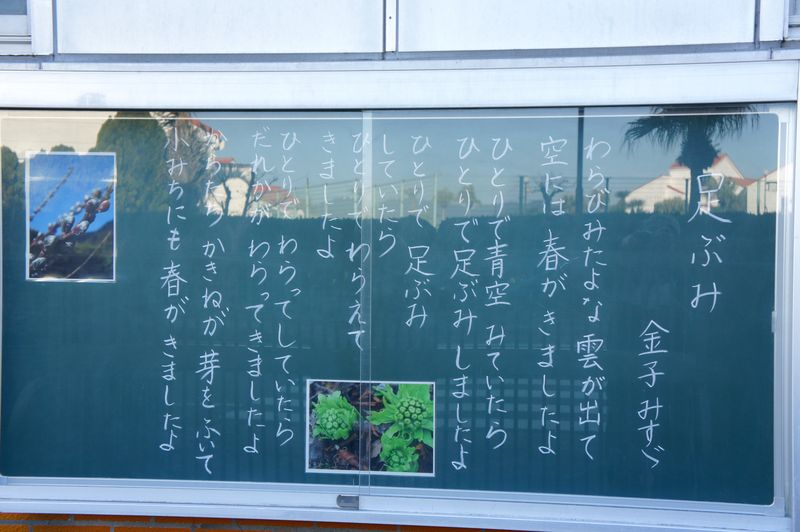 足ぶみ
金子みすゞ
わらびみたよな雲が出て
空には春がきましたよ
ひとりで青空みていたら
ひとりで足ぶみしましたよ
ひとりで足ぶみ
していたら
ひとりでわらえて
きましたよ
ひとりでわらってしていたら
だれかがわらってきましたよ
からたちかきねが芽をふいて
小みちにも春がきましたよ